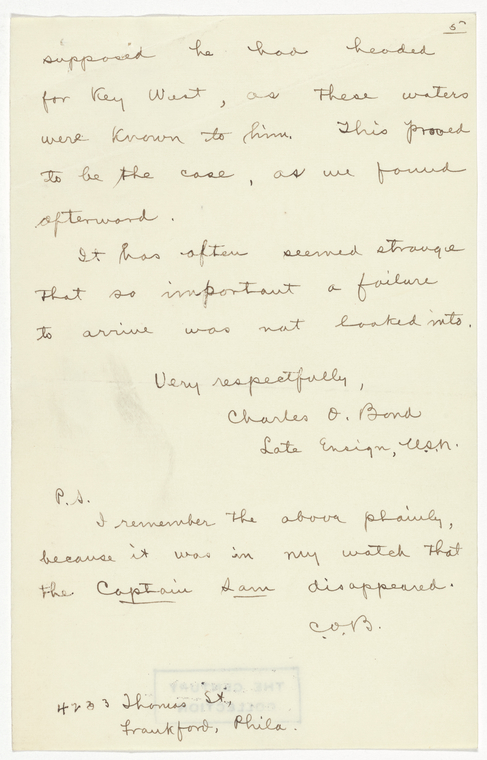 5
supposed he had headed
for Key West, as these waters
were known to him. This proved
to be the case, as we found
afterward.
It has often seemed strange
that so important a failure
to arrive was not looked into.
Very respectfully,
Charles O. Bond
Late Ensign, U.S.N.
P.S.
I remember the above plainly,
because it was in my watch that
the Captain Sam disappeared.
C.O.B.
THE CENTURY
COLLECTION
4233 Thomas St,
Frankford, Phila.